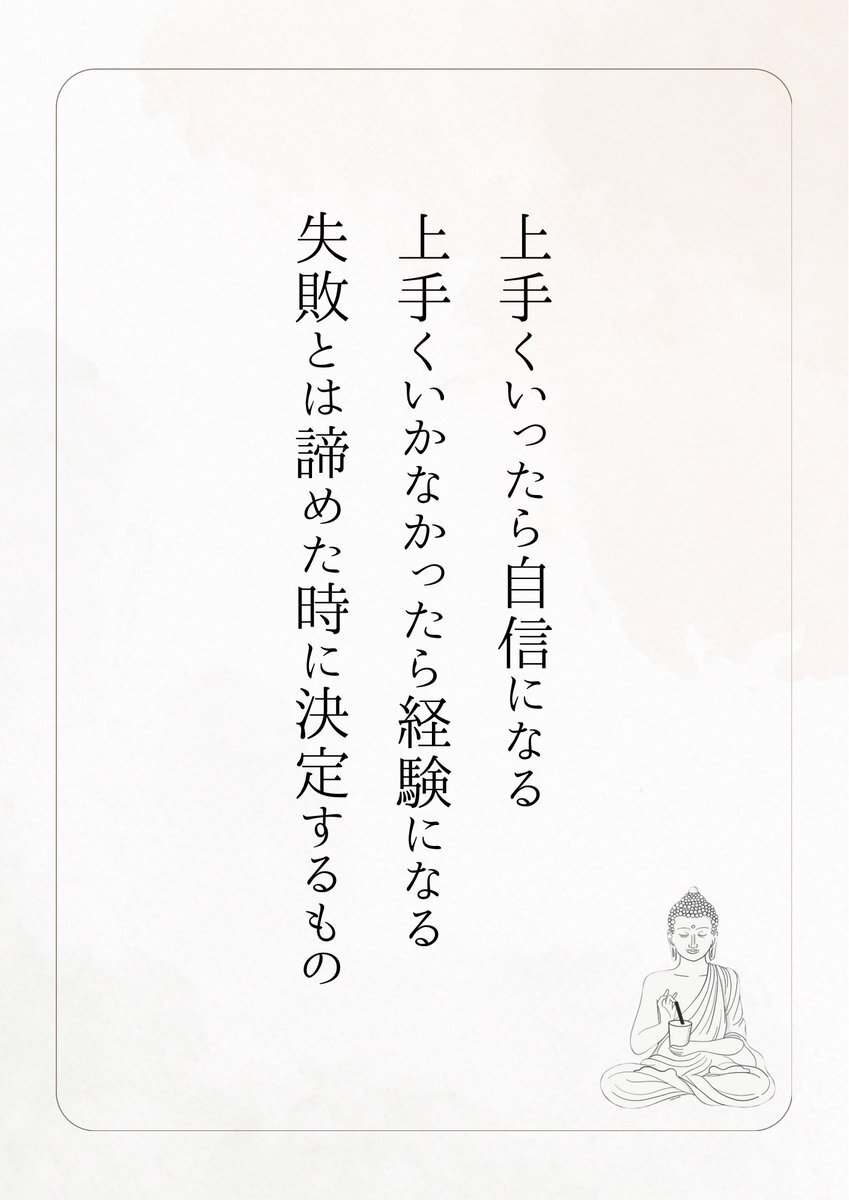 上手くいったら自信になる
上手くいかなかったら経験になる
失敗とは諦めた時に決定するもの